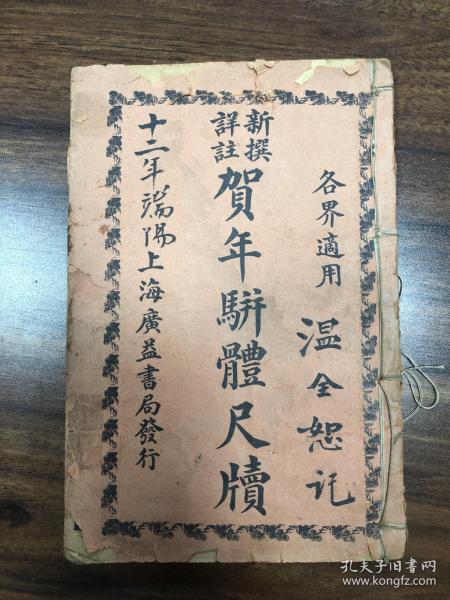 各界適用
温全恕记
新撰
詳註
賀年駢體尺牘
十二年端陽上海廣益書局發行
孔夫子旧书网
www.kongfz.com